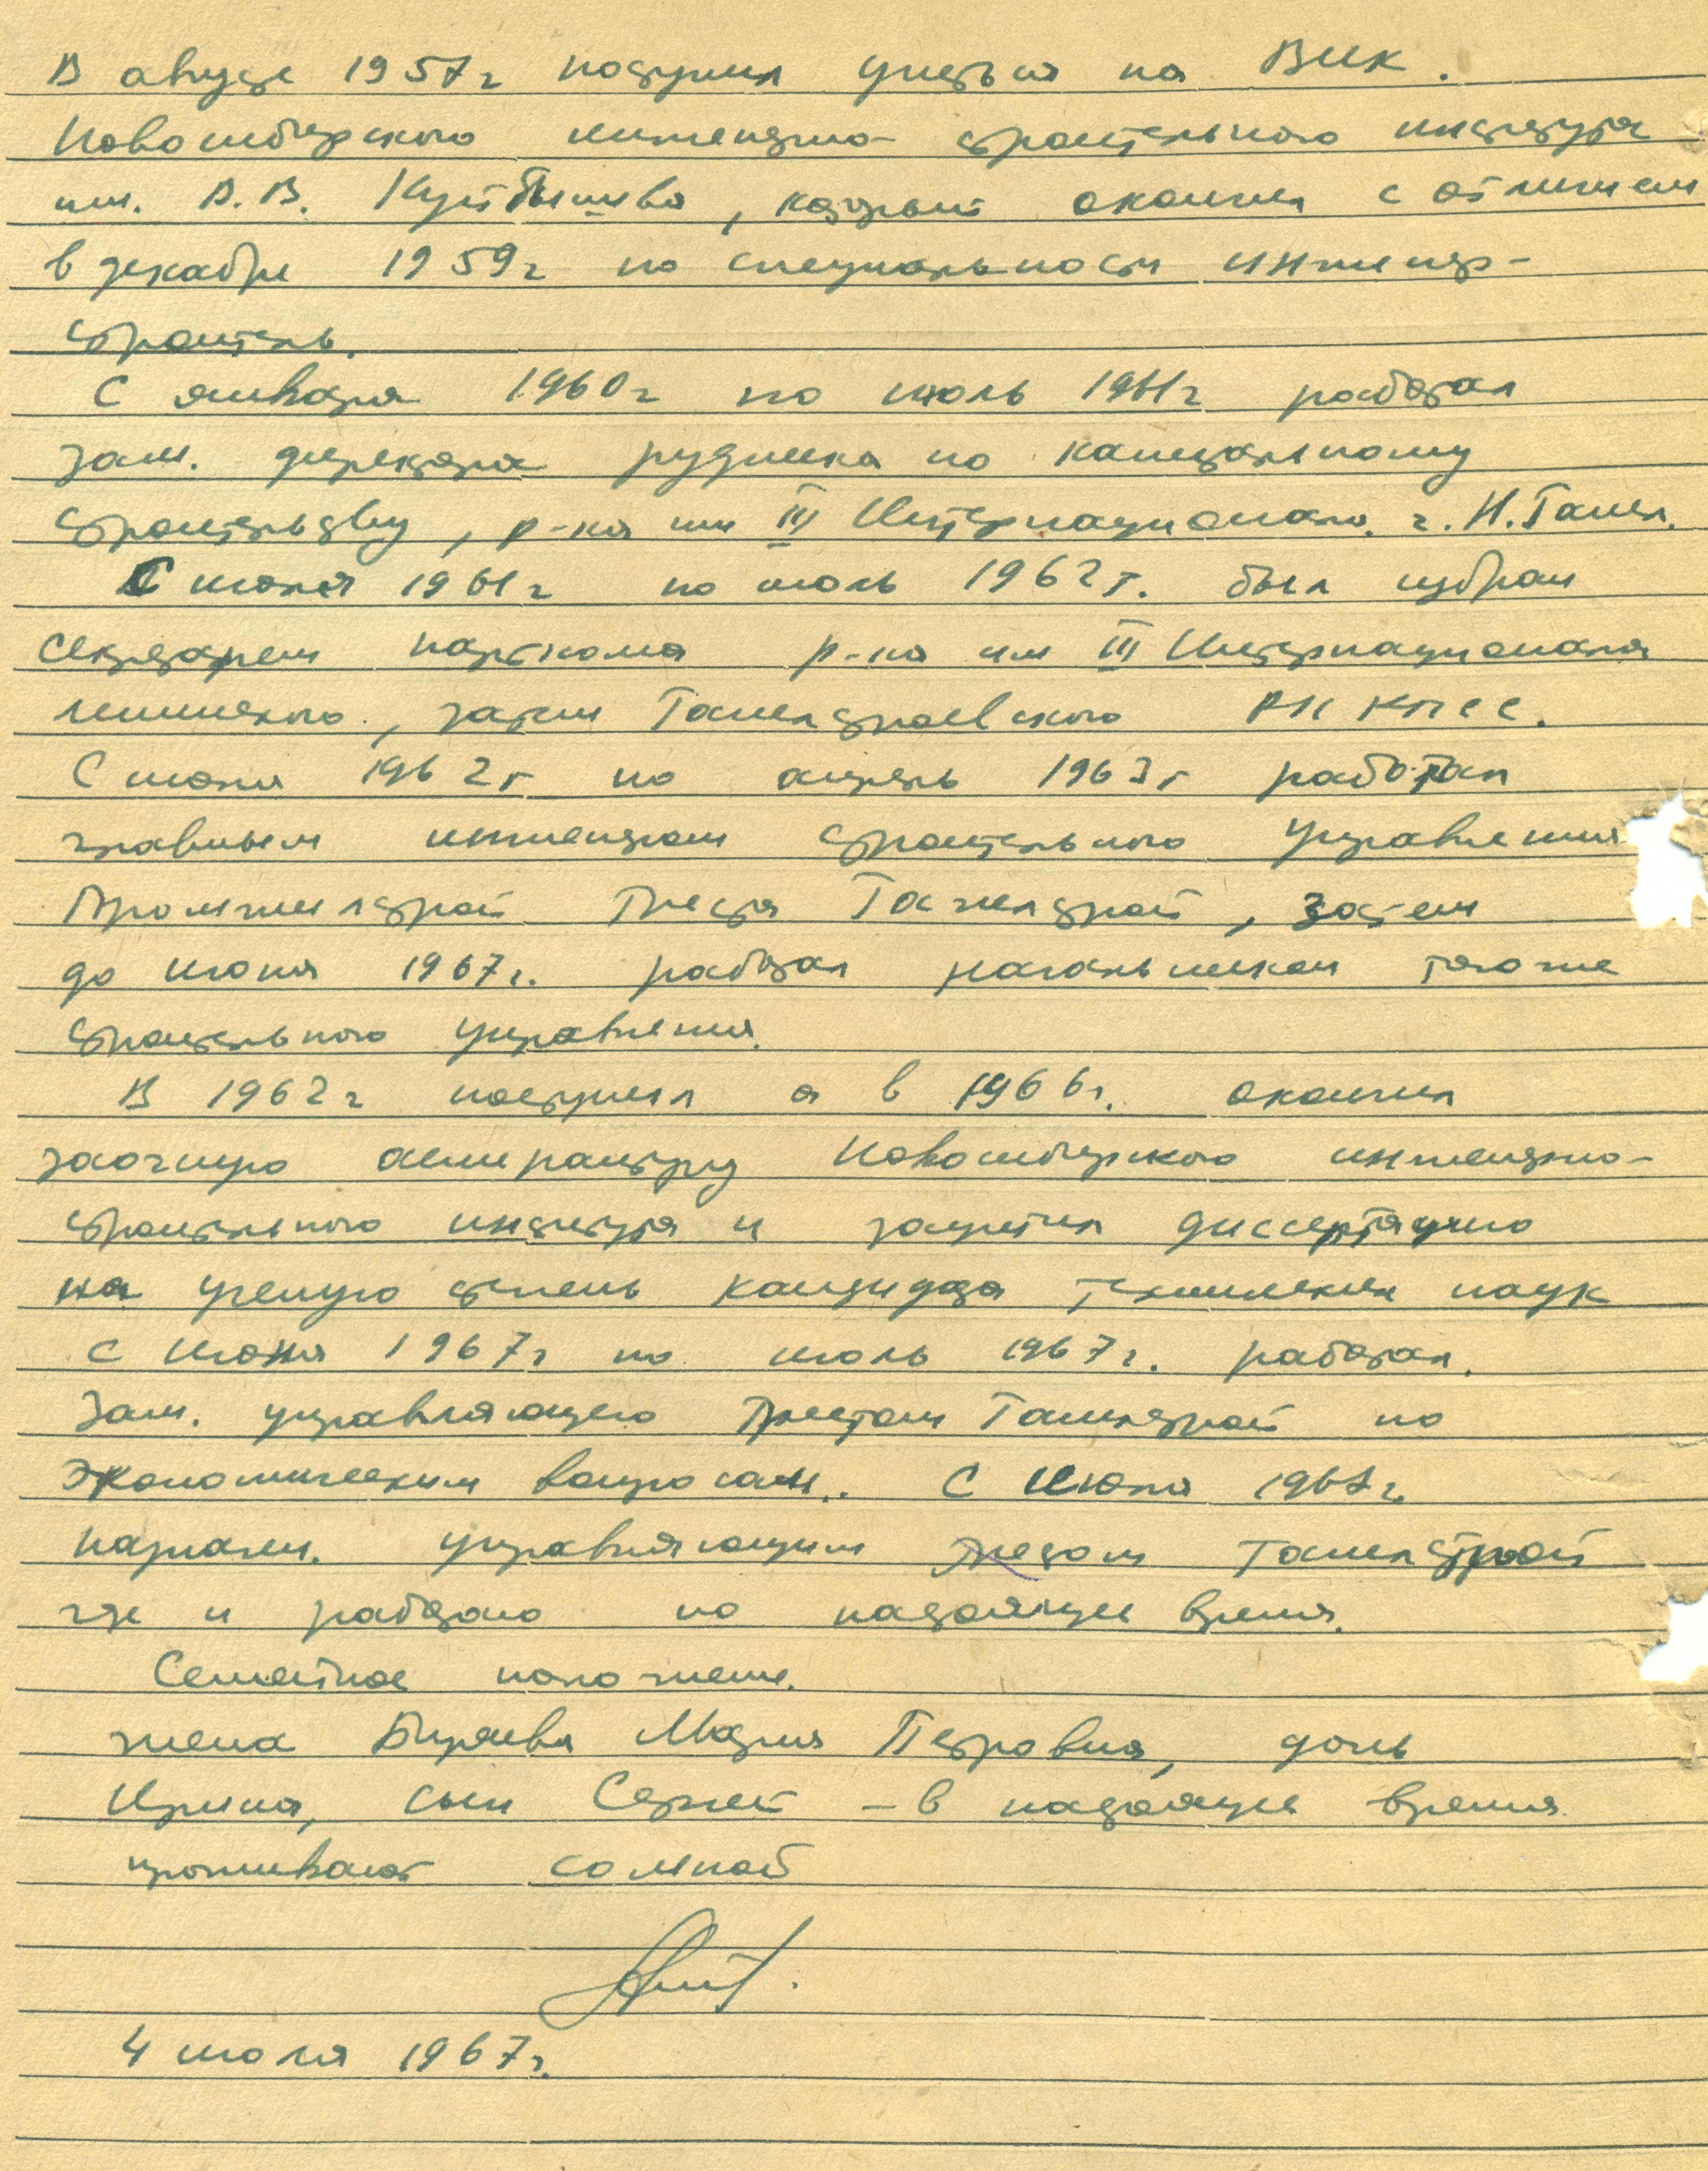 В августе 1957г поступил учиться на ВИК.
Новосибирского инженерно-строительного института
им. В.В. Куйбышева, который окончил с отличием
в декабре 1959г по специальности инженер-
строитель.
С января 1960г по июль 1961г работал
зам. директора рудника по капитальному
строительству, р-ка им III Интернационала. г. Н.Тагил.
С июля 1961г по июль 1962г. был избран
секретарем парткома р-ка им III Интернационала
, затем Тагилстроевского РК КПСС.
С июля 1962г по апрель 1963г работал
главным инженером строительного управления
Промжилстрой Треста Тагилстрой, затем
до июня 1967г. работал начальником того же
строительного управления.
В 1962г поступил а в 1966г. окончил
заочную аспирантуру Новосибирского инженерно-
строительного института и защитил диссертацию
на ученую степень кандидата технических наук
С июня 1967г по июль 1967г. работал.
Зам. управляющего Трестом Тагилстрой по
экономическим вопросам.. С июля 1967г.
назначен. управляющим трестом Тагилстрой
где и работаю по настоящее время.
Семейное положение.
жена Мария Петровна, дочь
Ирина, сын Сергей – в настоящее время
проживают со мной
4 июля 1967г.